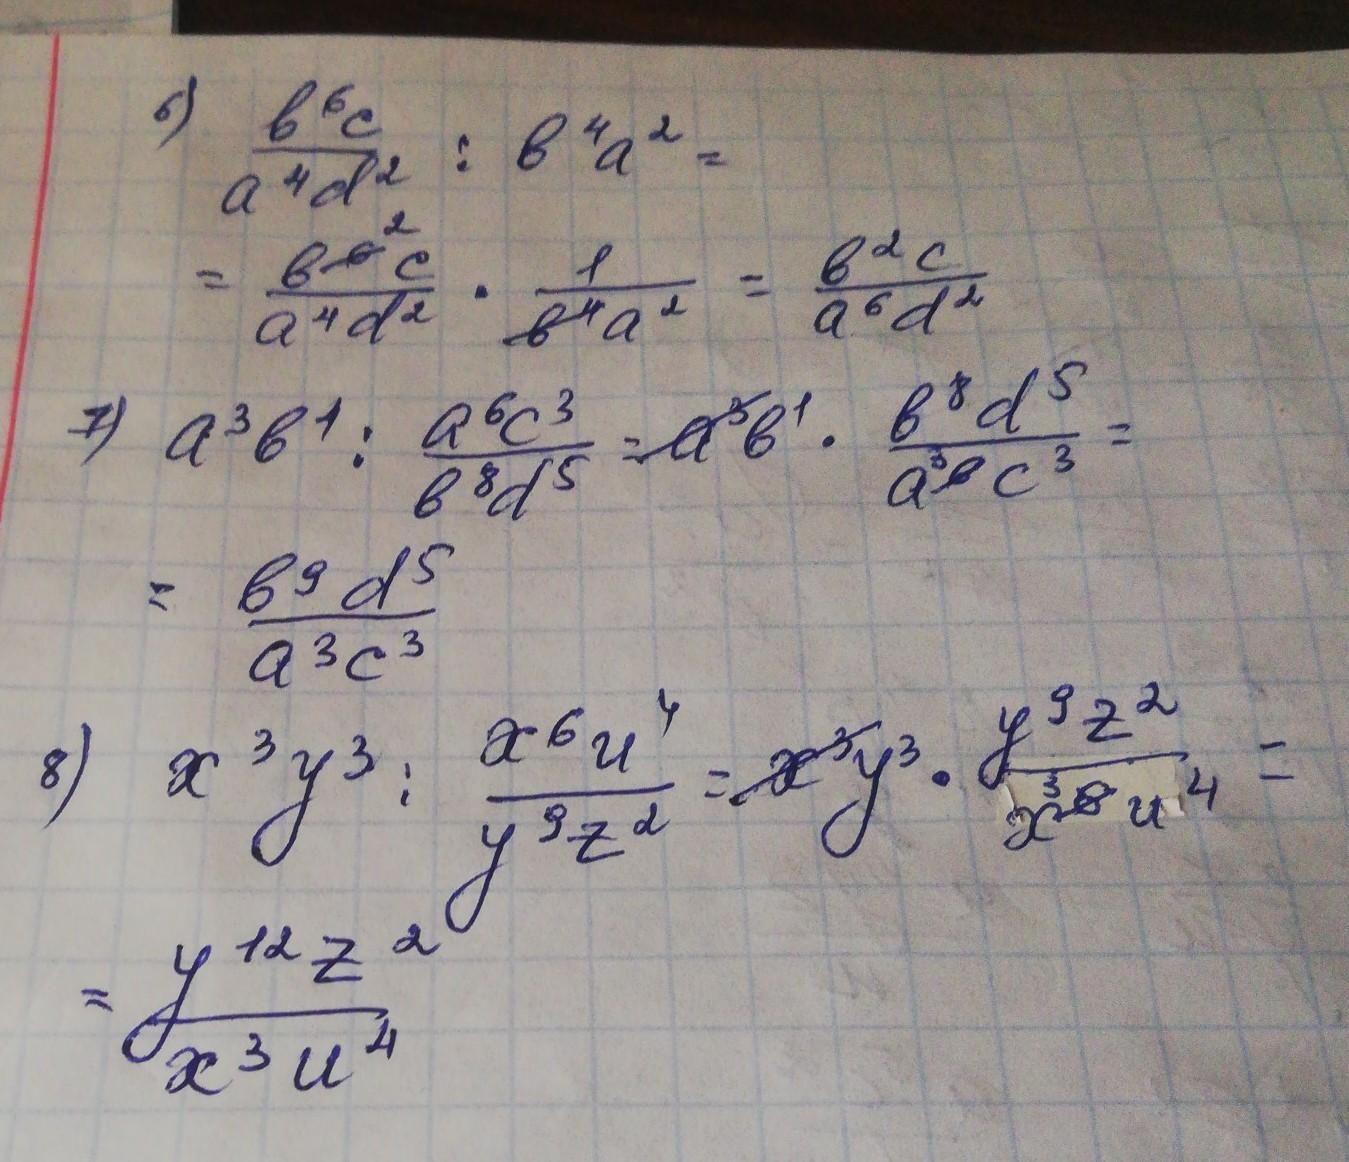 6) в⁶c/a⁴d² : в⁴a² =
= в⁶²c/a⁴d² · 1/в⁴a² = в²c/a⁶d²
7) a³в¹ : a⁶c³/в⁸d⁵ = a³в¹ · в⁸d⁵/a³⁶c³ =
= в⁹d⁵/a³c³
8) x³y³ : x⁶u⁴/y⁹z² = x³y³ · y⁹z²/x³⁶u⁴ =
= y¹²z²/x³u⁴